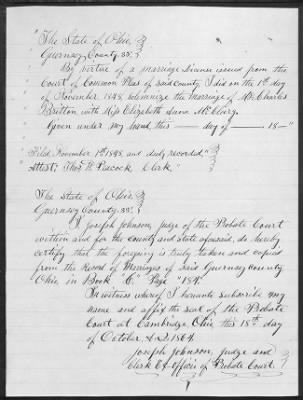 "The State of Ohio }
Guernsey County ss. }
By virtue of a marriage License issued from the
Court of Common Pleas of said county, I did on the 1st day
of November 1848, solemnize the Marriage of Mr. Charles
Britton with Miss Elizabeth Anne McCleary.
Given under my hand, this — day of — 18—"
"Filed November 1st 1848, and duly recorded."
Attest: Thos. W. Peacock Clerk"
The State of Ohio }
Guernsey County ss. }
I Joseph Johnson, Judge of the Probate Court
within and for the County and State aforesaid, do hereby
certify that the foregoing is truly taken and copied
from the Record of Marriages of said Guernsey County
Ohio in Book "C" Page 184.
In witness whereof I hereunto subscribe my
name and affix the seal of the Probate
Court at Cambridge, Ohio this 18th day
of October A.D. 1864.
Joseph Johnson, Judge and
Clerk Ex-officio of Probate Court.